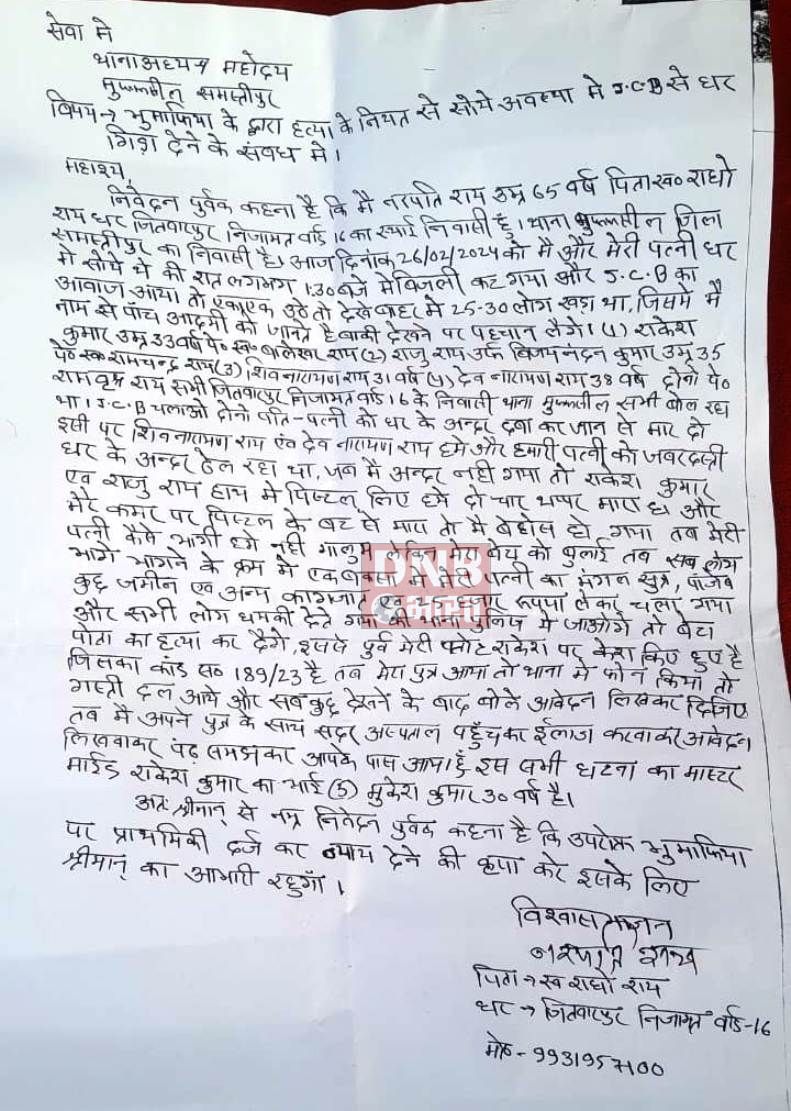 सेवा मे
थानाअध्यक्ष महोदय
मुफ्फसील समस्तीपुर
विषय→ भुमाफिया के द्वारा हत्या के नियत से सोये अवस्था मे J.C.B से घर
गिड़ा देने के संबध मे।
महाश्य,
निवेदन पुर्वक कहना है कि मै नरपति राय उम्र 65 वर्ष पिता स्व० राधो
राय घर जितवारपुर निजामत वार्ड 16 का स्थाई निवासी हुँ। थाना मुफ्फसील जिला
समस्तीपुर का निवासी है। आज दिनांक 26/02/2024 को मै और मेरी पत्नी घर
मे सोये थे की रात लगभग 1:30 बजे मे बिजली कट गया और J.C.B का
आवाज आया तो एकाएक उठे तो देखे बाहर मे 25-30 लोग खड़ा था, जिसमे मै
नाम से पाँच आदमी को जानते है बाकी देखने पर पहचान लेंगे। (1) राकेश
कुमार उम्र 33 वर्ष पे० स्व० बालेश्वर राय (2) राजु राय उर्फ विजयनंदन कुमार उम्र 35
पे० स्व० रामचन्द्र राय (3) शिवनारायण राय 31 वर्ष (4) देव नारायण राय 38 वर्ष दोनो पे०
रामवृक्ष राय सभी जितवारपुर निजामत वार्ड 16 के निवासी थाना मुफ्फसील सभी बोल रहा
था। J.C.B चलाओ दोनो पति-पत्नी को घर के अन्दर दबा कर जान से मार दो
इसी पर शिवनारायण राय एंव देव नारायण राय हमे और हमारी पत्नी को जबरदस्ती
घर के अन्दर ढेल रहा था, जब मे अन्दर नही गया तो राकेश कुमार
एव राजु राय हाथ मे पिस्टल लिए हमे दो चार थप्पर मारा है और
मेरे कमर पर पिस्टल के बट से मारा तो मै बेहोस हो गया तब मेरी
पत्नी कैसे भागी हमे नही मालुम लेकिन मेरा बेटा को बुलाई तब सब लोग
भागे भागने के क्रम मे एक बक्सा मे मेरे पत्नी का मंगल सुत्र, पाजेब
कुछ जमीन एव अन्य कागजात एव 25 रूपया लेकर चला गया
और सभी लोग धमकी देते गया की थाना पुलिस मे जाओगे तो बेटा
पोता का हत्या कर देंगे, इससे पुर्व मेरी राकेश पर केश किए हुए है
जिसका कांड स० 189/23 है तब मेरा पुत्र आया तो थाना मे फोन किया तो
गस्ती दल आये और सबकुछ देखने के बाद बोले आवेदन लिखकर दिजिए
तब मै अपने पुत्र के साथ सदर अस्पताल पहुँचकर ईलाज करवाकर आवेदन
लिखवाकर पढ़ समझकर आपके पास आया हुँ इस सभी घटना का मास्टर
माईंड राकेश कुमार का भाई (5) मुकेश कुमार 30 वर्ष है।
अतः श्रीमान् से नम्र निवेदन पुर्वक कहना है कि उपरोक्त भुमाफिया
पर प्राथमिकी दर्ज कर न्याय देने की कृपा करे इसके लिए
श्रीमान् का आभारी रहुगाँ।
विश्वासभाजन
नरपति राय
पिता → स्व राधो राय
घर → जितवारपुर निजामत वार्ड-16
मो०-9931957100
DNB
भारत